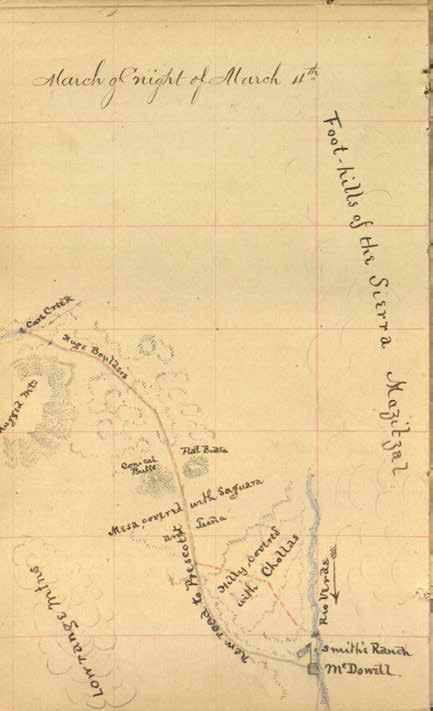 March of night of March 4th
Foot-hills of the Sierra Mazitzal
Cave Creek
Huge Boulders
Rugged Mts
Flat Butte
Conical
Butte
Mesa covered with Saguara
and Tuña
Hilly, Covered
with Chollas
new road to Prescott
Rio Verde
Low range Mtns
Smith's Ranch
McDowell.